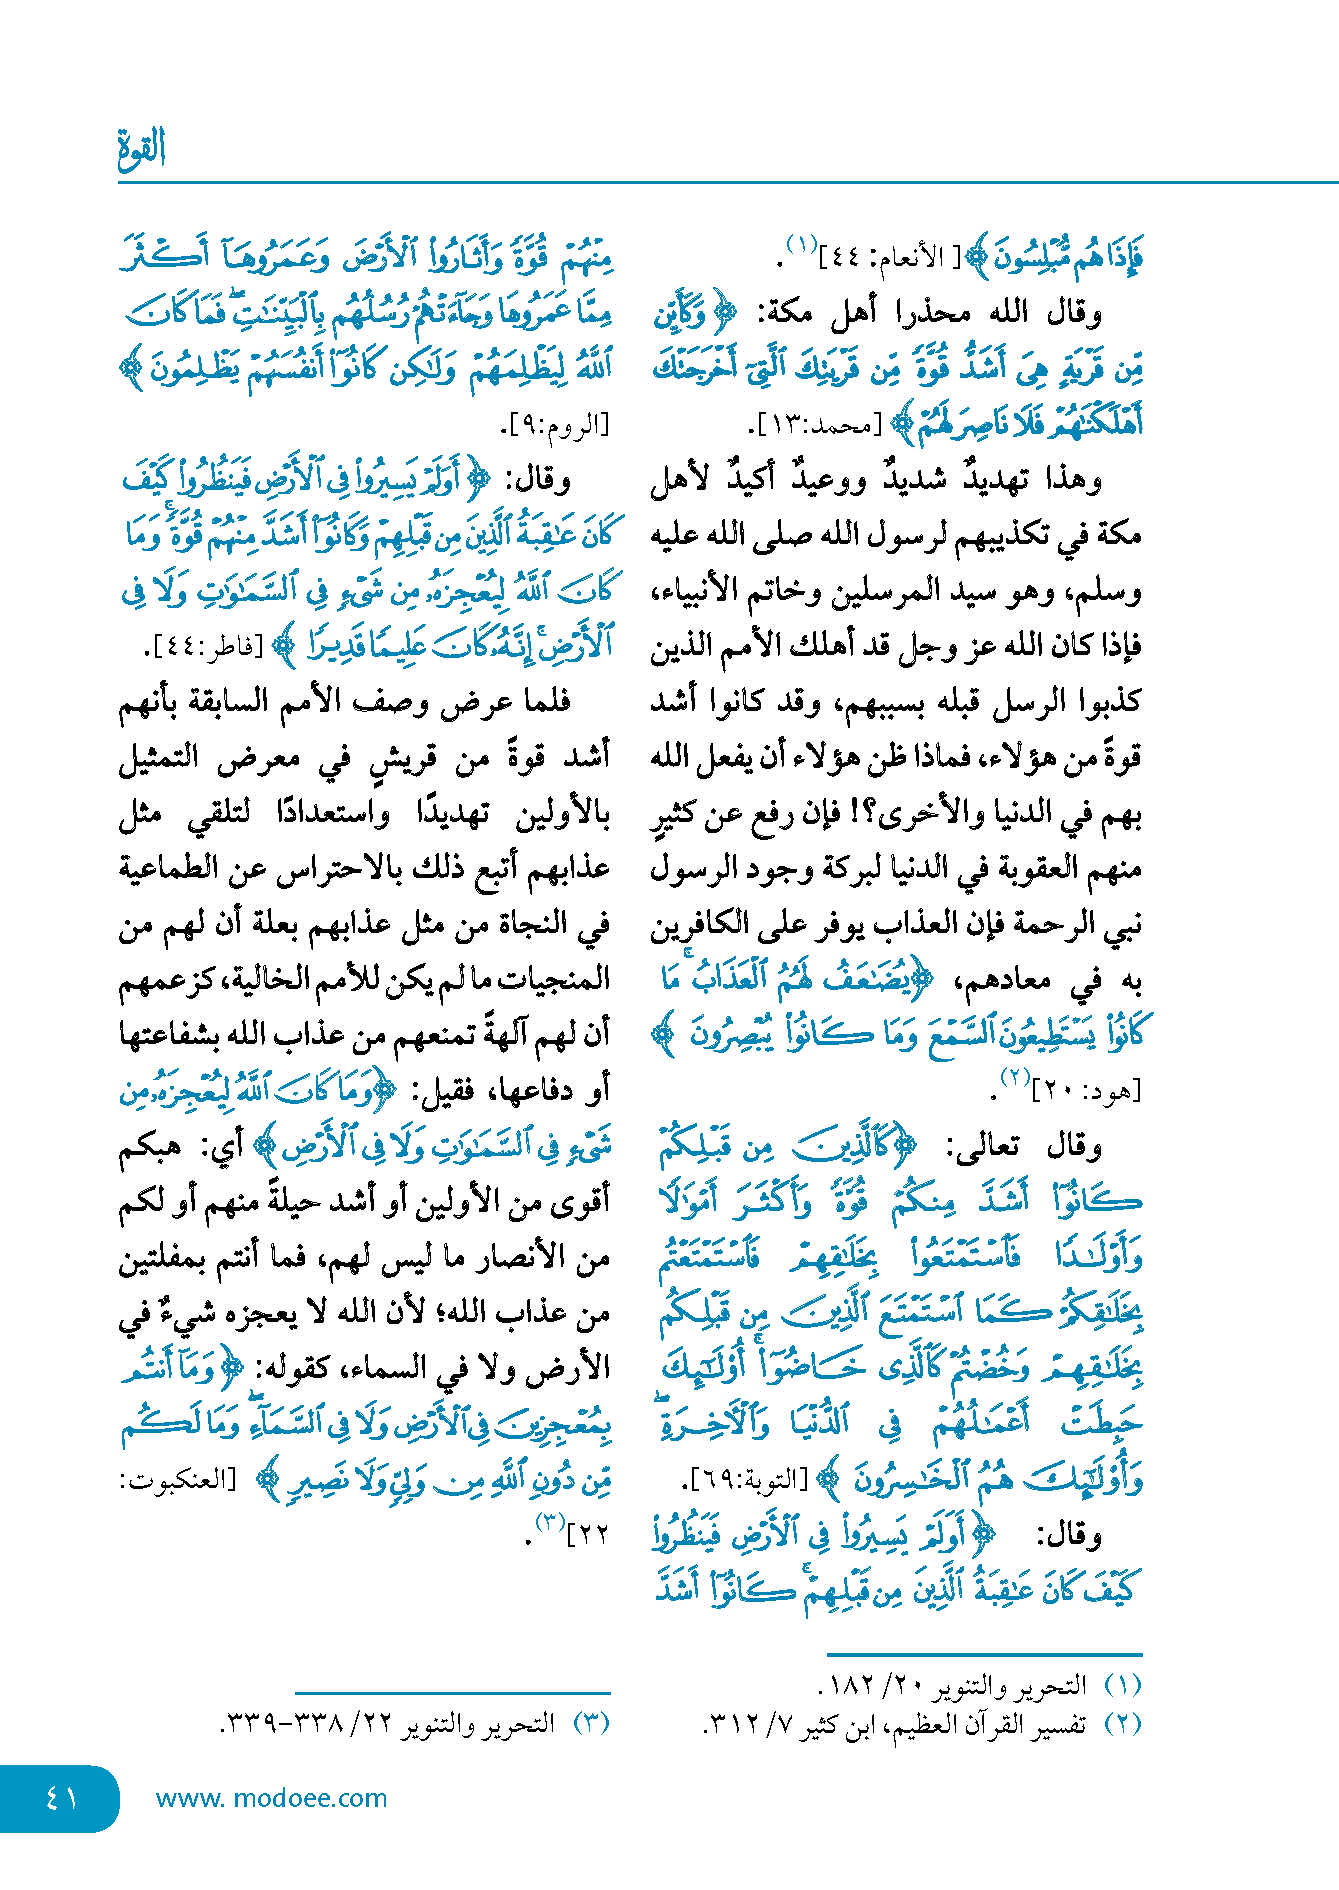 القوة
فَإِذَا هُم مُّبْلِسُونَ ﴾ [الأنعام: ٤٤](١).
وقال الله محذرا أهل مكة: ﴿ وَكَأَيِّن
مِّن قَرْيَةٍ هِىَ أَشَدُّ قُوَّةً مِّن قَرْيَتِكَ ٱلَّتِىٓ أَخْرَجَتْكَ
أَهْلَكْنَٰهُمْ فَلَا نَاصِرَ لَهُمْ ﴾ [محمد:١٣].
وهذا تهديدٌ شديدٌ ووعيدٌ أكيدٌ لأهل
مكة في تكذيبهم لرسول الله صلى الله عليه
وسلم، وهو سيد المرسلين وخاتم الأنبياء،
فإذا كان الله عز وجل قد أهلك الأمم الذين
كذبوا الرسل قبله بسببهم، وقد كانوا أشد
قوةً من هؤلاء، فماذا ظن هؤلاء أن يفعل الله
بهم في الدنيا والأخرى؟! فإن رفع عن كثيرٍ
منهم العقوبة في الدنيا لبركة وجود الرسول
نبي الرحمة فإن العذاب يوفر على الكافرين
به في معادهم، ﴿يُضَٰعَفُ لَهُمُ ٱلْعَذَابُ ۚ مَا
كَانُوا۟ يَسْتَطِيعُونَ ٱلسَّمْعَ وَمَا كَانُوا۟ يُبْصِرُونَ ﴾
[هود: ٢٠](٢).
وقال تعالى: ﴿كَٱلَّذِينَ مِن قَبْلِكُمْ
كَانُوٓا۟ أَشَدَّ مِنكُمْ قُوَّةً وَأَكْثَرَ أَمْوَٰلًا
وَأَوْلَٰدًا فَٱسْتَمْتَعُوا۟ بِخَلَٰقِهِمْ فَٱسْتَمْتَعْتُم
بِخَلَٰقِكُمْ كَمَا ٱسْتَمْتَعَ ٱلَّذِينَ مِن قَبْلِكُم
بِخَلَٰقِهِمْ وَخُضْتُمْ كَٱلَّذِى خَاضُوٓا۟ ۚ أُو۟لَٰٓئِكَ
حَبِطَتْ أَعْمَٰلُهُمْ فِى ٱلدُّنْيَا وَٱلْءَاخِرَةِ ۖ
وَأُو۟لَٰٓئِكَ هُمُ ٱلْخَٰسِرُونَ ﴾ [التوبة:٦٩].
وقال: ﴿ أَوَلَمْ يَسِيرُوا۟ فِى ٱلْأَرْضِ فَيَنظُرُوا۟
كَيْفَ كَانَ عَٰقِبَةُ ٱلَّذِينَ مِن قَبْلِهِمْ ۚ كَانُوٓا۟ أَشَدَّ
(١) التحرير والتنوير ٢٠/ ١٨٢.
(٢) تفسير القرآن العظيم، ابن كثير ٧/ ٣١٢.
مِنْهُمْ قُوَّةً وَأَثَارُوا۟ ٱلْأَرْضَ وَعَمَرُوهَآ أَكْثَرَ
مِمَّا عَمَرُوهَا وَجَآءَتْهُمْ رُسُلُهُم بِٱلْبَيِّنَٰتِ ۖ فَمَا كَانَ
ٱللَّهُ لِيَظْلِمَهُمْ وَلَٰكِن كَانُوٓا۟ أَنفُسَهُمْ يَظْلِمُونَ ﴾
[الروم:٩].
وقال: ﴿ أَوَلَمْ يَسِيرُوا۟ فِى ٱلْأَرْضِ فَيَنظُرُوا۟ كَيْفَ
كَانَ عَٰقِبَةُ ٱلَّذِينَ مِن قَبْلِهِمْ وَكَانُوٓا۟ أَشَدَّ مِنْهُمْ قُوَّةً ۚ وَمَا
كَانَ ٱللَّهُ لِيُعْجِزَهُۥ مِن شَىْءٍ فِى ٱلسَّمَٰوَٰتِ وَلَا فِى
ٱلْأَرْضِ ۚ إِنَّهُۥ كَانَ عَلِيمًا قَدِيرًا ﴾ [فاطر:٤٤].
فلما عرض وصف الأمم السابقة بأنهم
أشد قوةً من قريشٍ في معرض التمثيل
بالأولين تهديدًا واستعدادًا لتلقي مثل
عذابهم أتبع ذلك بالاحتراس عن الطماعية
في النجاة من مثل عذابهم بعلة أن لهم من
المنجيات ما لم يكن للأمم الخالية، كزعمهم
أن لهم آلهةً تمنعهم من عذاب الله بشفاعتها
أو دفاعها، فقيل: ﴿وَمَا كَانَ ٱللَّهُ لِيُعْجِزَهُۥ مِن
شَىْءٍ فِى ٱلسَّمَٰوَٰتِ وَلَا فِى ٱلْأَرْضِ ﴾ أي: هبكم
أقوى من الأولين أو أشد حيلةً منهم أو لكم
من الأنصار ما ليس لهم، فما أنتم بمفلتين
من عذاب الله؛ لأن الله لا يعجزه شيءٌ في
الأرض ولا في السماء، كقوله: ﴿ وَمَآ أَنتُم
بِمُعْجِزِينَ فِى ٱلْأَرْضِ وَلَا فِى ٱلسَّمَآءِ ۖ وَمَا لَكُم
مِّن دُونِ ٱللَّهِ مِن وَلِىٍّ وَلَا نَصِيرٍ ﴾ [العنكبوت:
٢٢](٣).
(٣) التحرير والتنوير ٢٢/ ٣٣٨-٣٣٩.
www. modoee.com
٤١